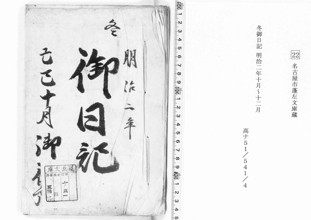 22 名古屋市蓬左文庫蔵
冬御日記 明治二年十月〜十二月
高ナ51／541／4
明治二年
冬
御日記
己巳十月